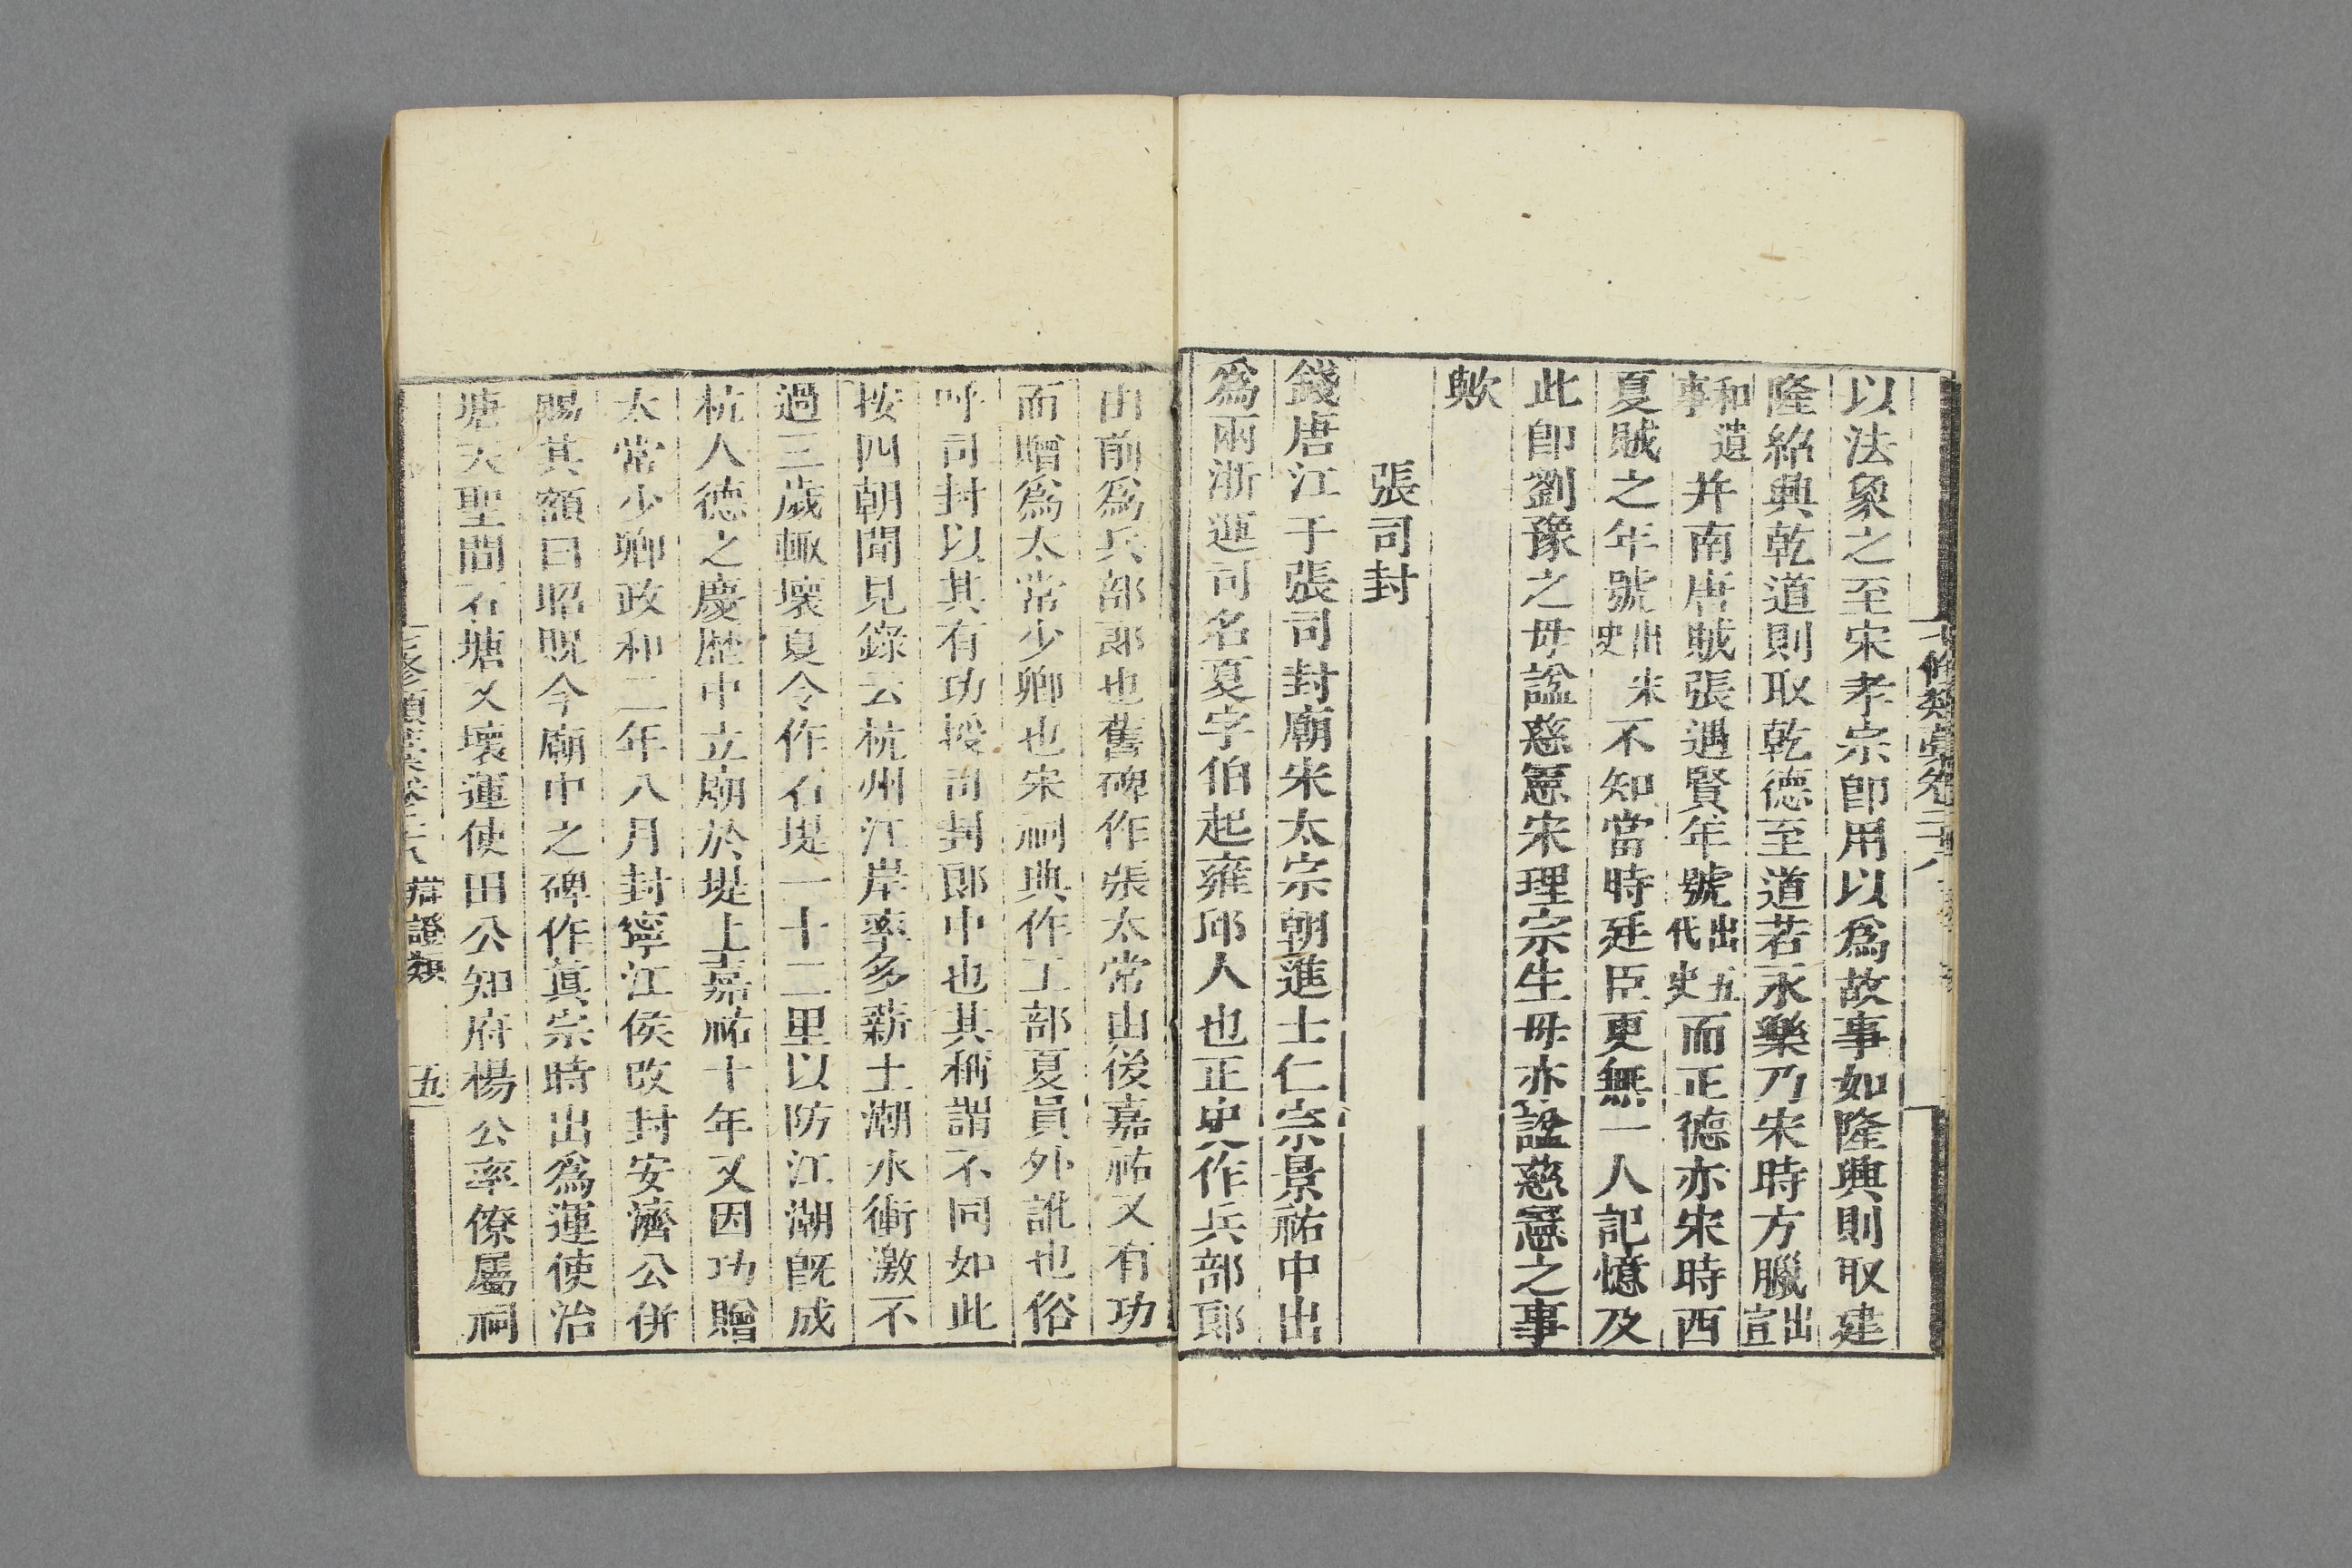 七修類藁卷二十八
以法象之至宋孝宗卽用以爲故事如隆興則取建
隆紹興乾道則取乾德至道若永樂乃宋時方臘出宣
和遺事并南唐賊張遇賢年號出五代史而正德亦宋時西
夏賊之年號出宋史不知當時廷臣更無一人記憶及
此卽劉豫之母諡慈憲宋理宗生母亦諡慈憲之事
歟
張司封
錢唐江干張司封廟宋太宗朝進士仁宗景祐中出
爲兩浙運司名夏字伯起雍邱人也正史作兵部郎
由前爲兵部郎也舊碑作張太常由後嘉祐又有功
而贈爲太常少卿也宋祠典作工部夏員外訛也俗
呼司封以其有功授司封郎中也其稱謂不同如此
按四朝聞見錄云杭州江岸率多薪土潮水衝激不
過三歲輙壞夏令作石堤一十二里以防江潮旣成
杭人德之慶歷中立廟於堤上嘉祐十年又因功贈
太常少卿政和二年八月封寧江侯改封安濟公併
賜其額曰昭貺今廟中之碑作眞宗時出爲運使治
塘天聖間石塘又壞運使田公知府楊公率僚屬祠
七修類藁卷二十八 辯證類 五